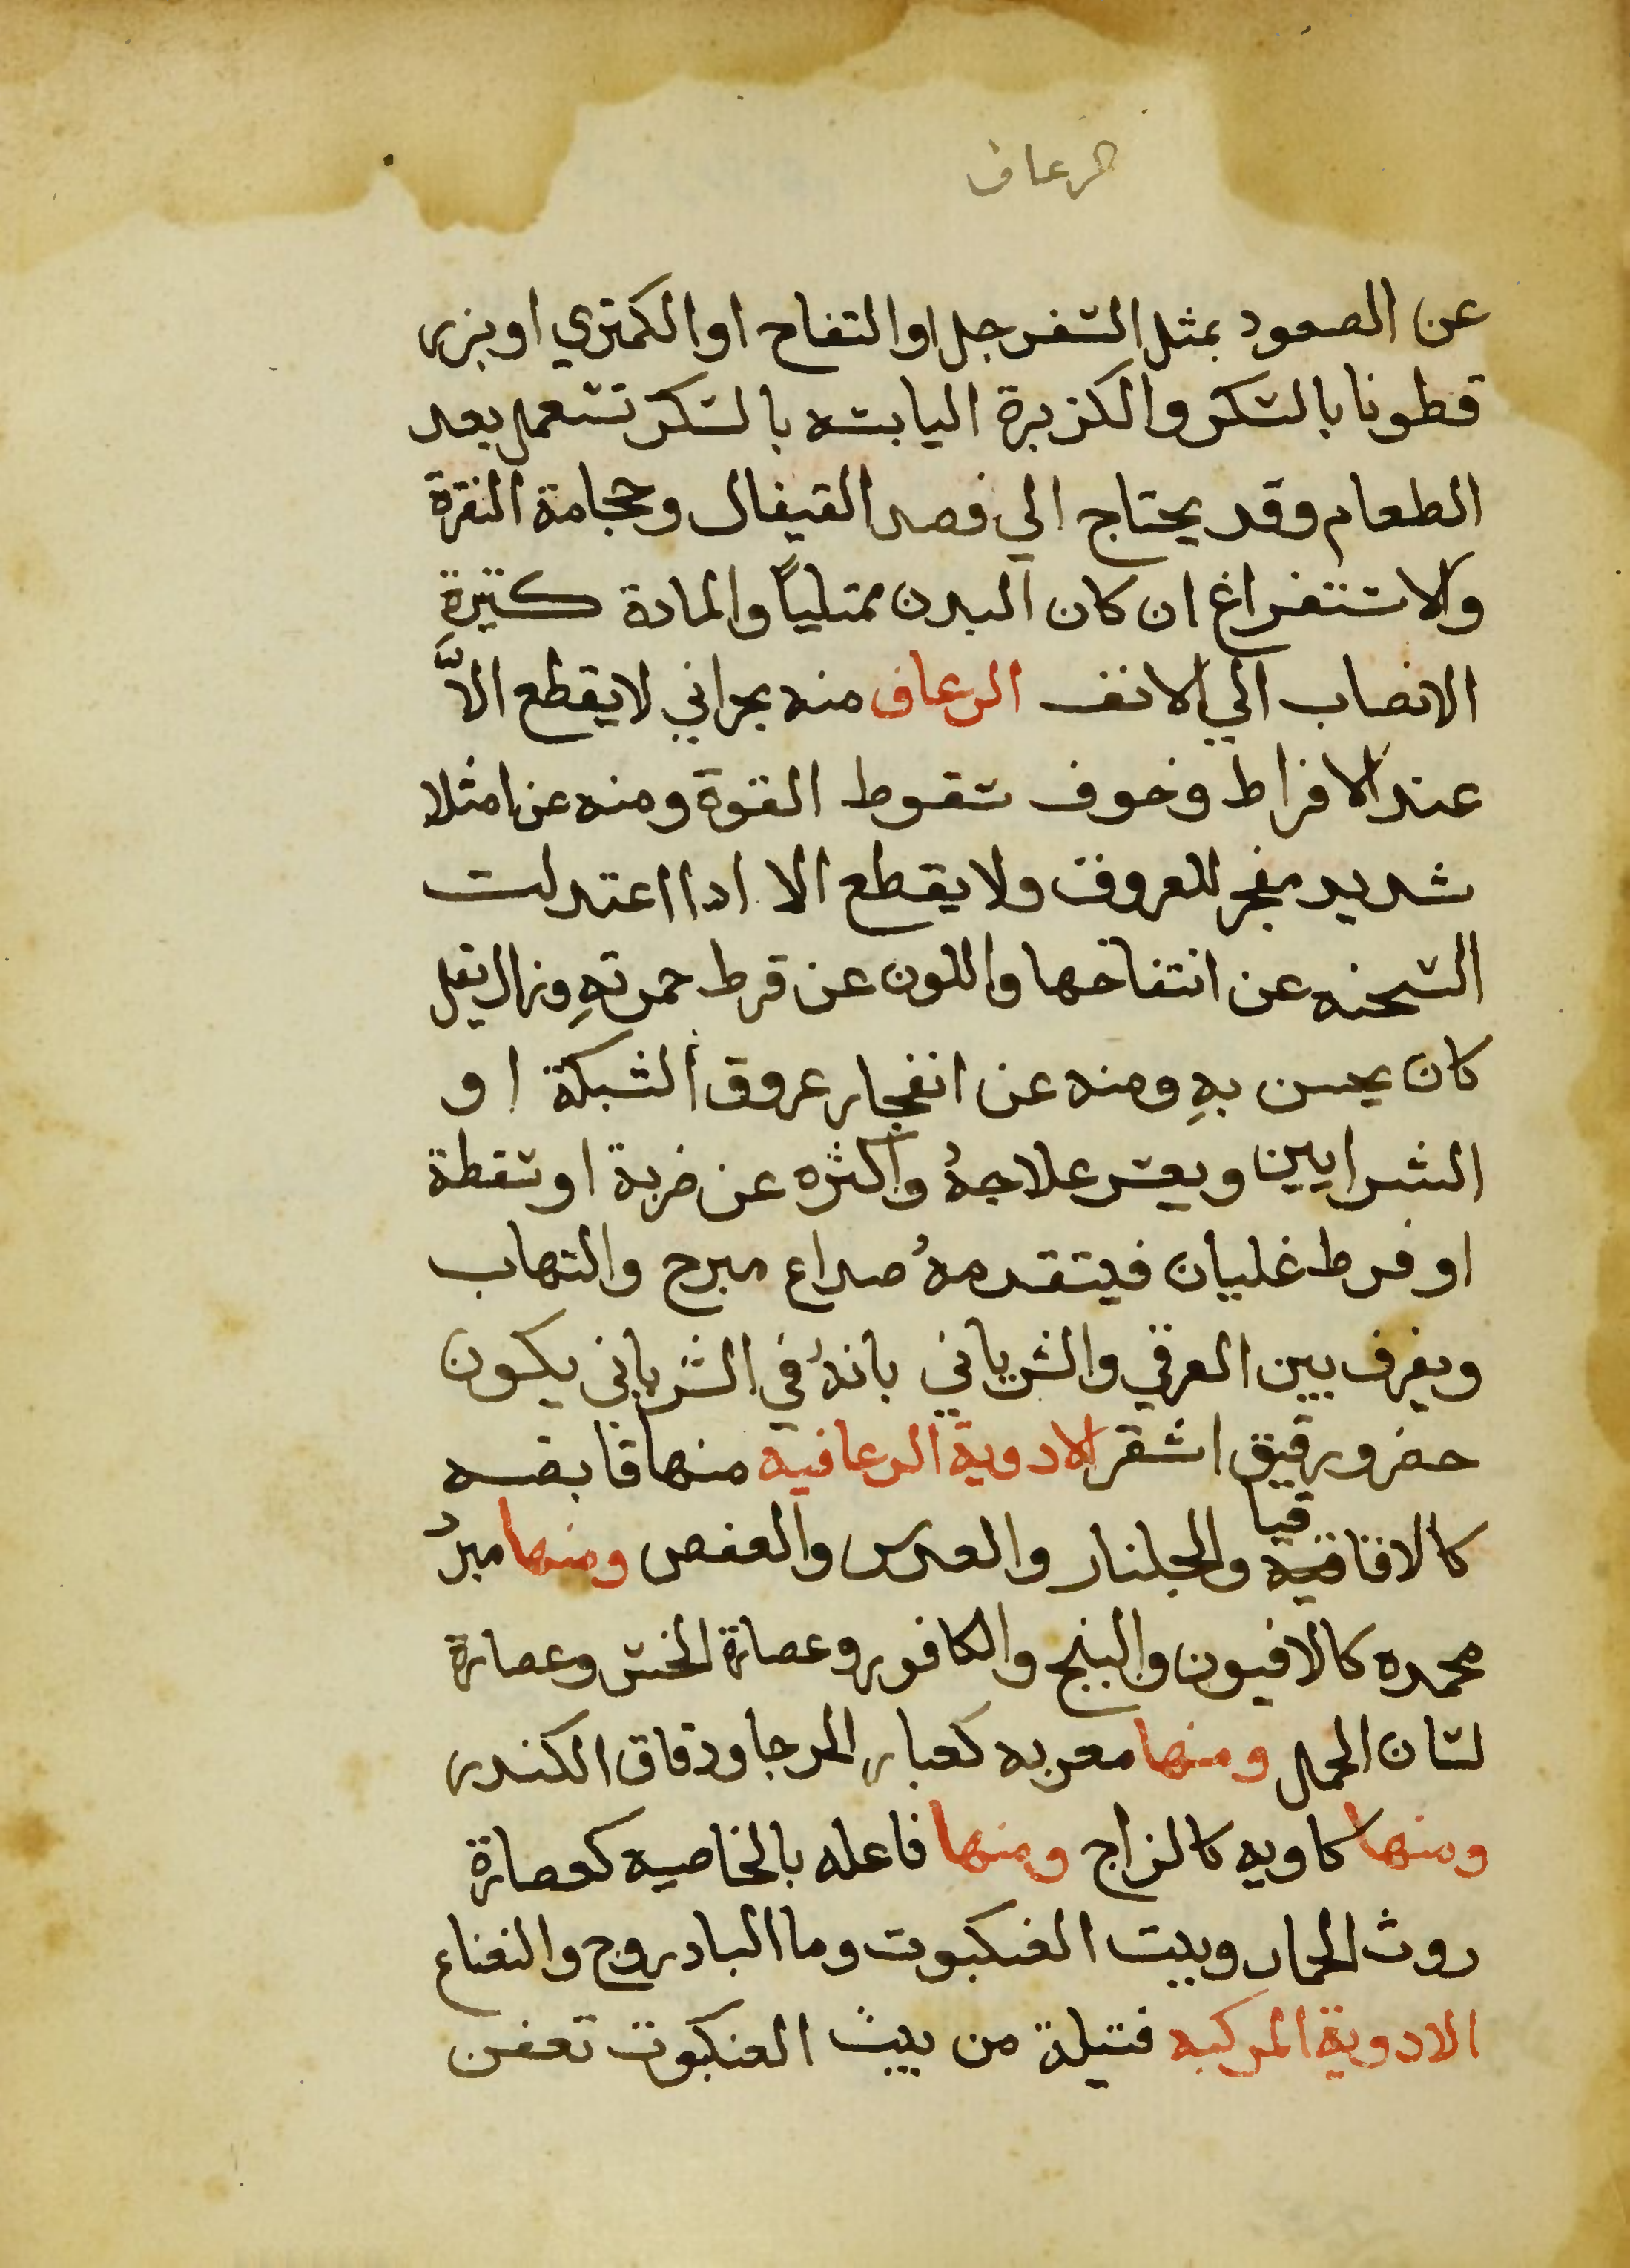 الرعاف
عن الصعود بمثل السفرجل او التفاح او الكمتري او بزر
قطونا بالسكر والكزبرة اليابسه بالسكر تستعمل بعد
الطعام وقد يحتاج الي فصد القيفال وحجامة النقرة
والاستفراغ ان كان البدن ممتلياً والمادة كتيرةِ
الانصاب الي الانف الرعاف منه بحراني لا يقطع الاَّ
عند الافراط وخوف سقوط القوة ومنه عن امثلا
شديد مفجر للعروق ولا يقطع الا ادا اعتدلت
السحنه عن انتفاخها واللون عن فرط حمرتهِ وزال ثقل
كان يحس بهِ ومنه عن انفجار عروق الشبكة او
الشرايين ويعسر علاجهُ واكثره عن ضربة او سقطة
او فرط غليان فيتقدمهُ صداع مبرح والتهاب
ويفرف بين العرقي والشرياني بانهُ في الشرياني يكون
حفر ورقيق اشقر الادوية الرعافيه منها قابضه
كالاقاقيا والجلنار والعدس والعفص ومنها مبردُ
مجمده كالافيون والبنج والكافور وعصارة الخس وعصارة
لسان الحمل ومنها مغريه كغبار الرحا ودقاق الكندر
ومنها كاويه كالزاج ومنها فاعله بالخاصيه كعصارة
روث الحمار وبيت العنكبوت وما البادروج والنعناع
الادوية المركبه فتيلة من بيت العنكبوت تغمس